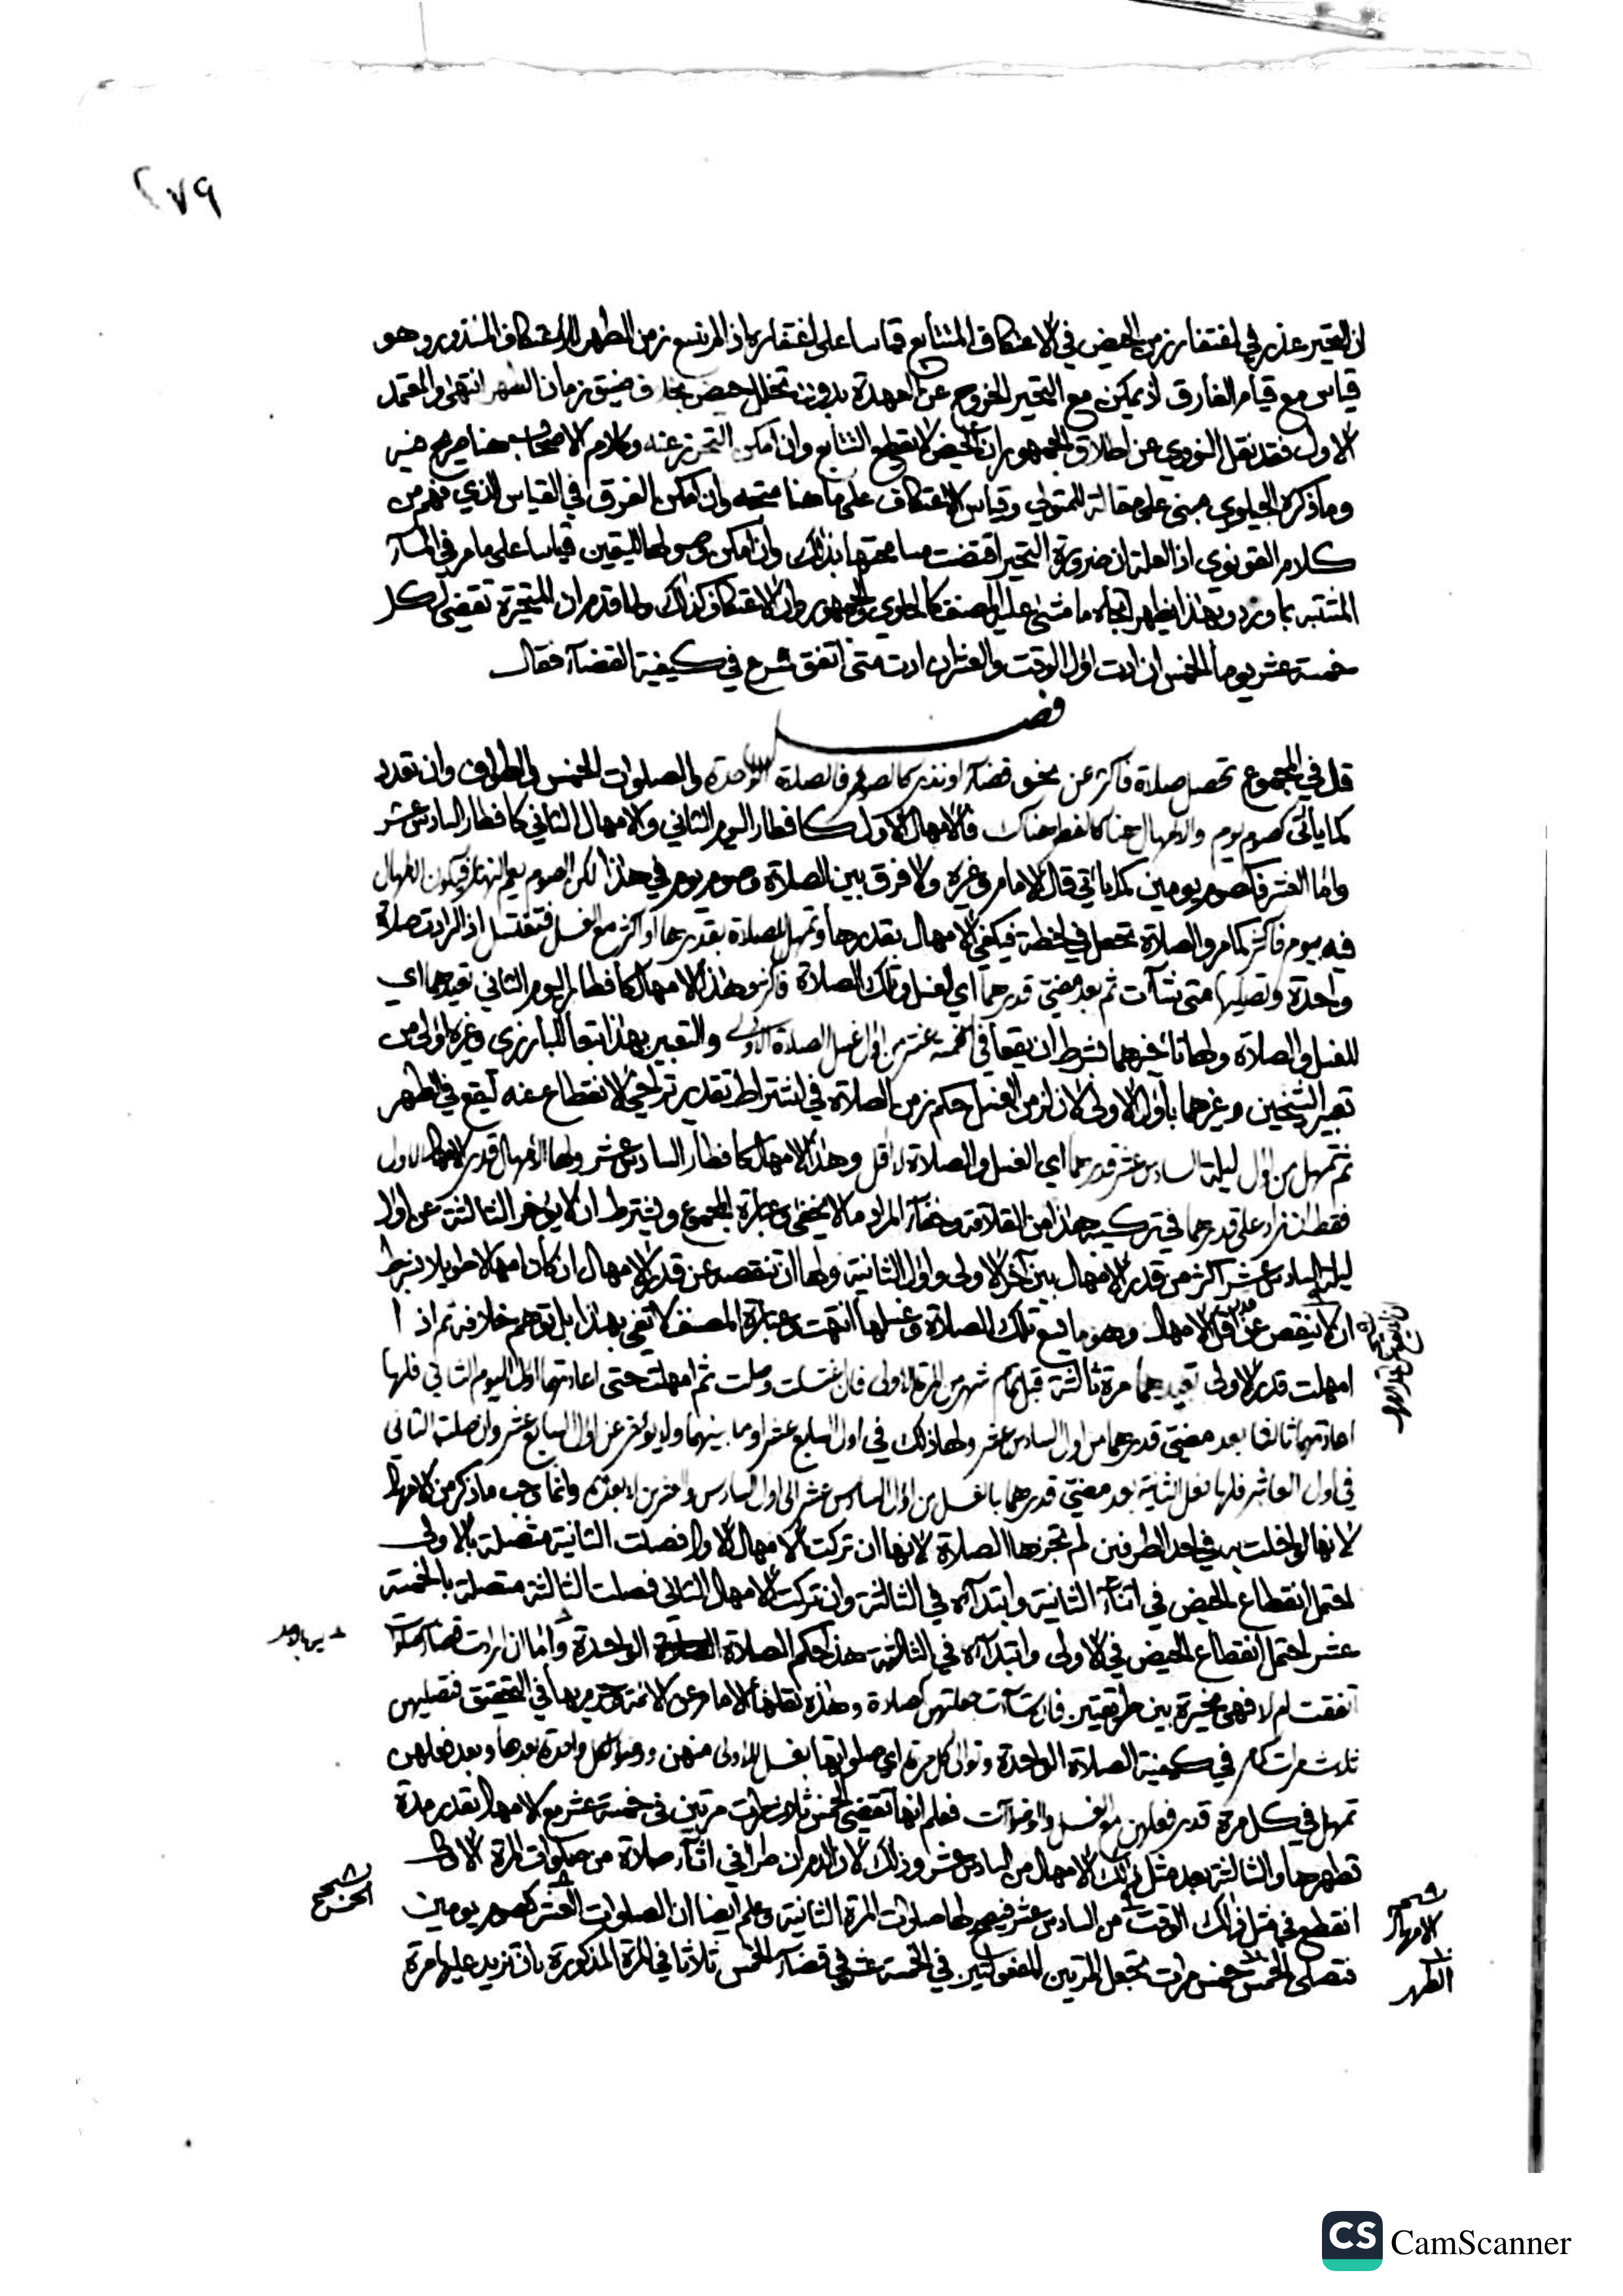 ٢٧٩
ان التحير عذر في اغتفار زمن الحيض في الاعتكاف المتتابع قياسا على اغتفاره اذا لم يتسع زمن الطهر للاعتكاف المنذور وهو
قياس مع قيام الفارق اذ يمكن مع التحير الخروج عن العهدة بدون تخلل حيض بخلاف ضيق زمان الطهر انتهى والمعتمد
الاول فقد نقل النووي عن اطلاق الجمهور ان الحيض لا يقطع التتابع وان امكن التحرز عنه وكلام الاصحاب هنا صريح فيه
وما ذكره الجيلوي مبنى على مقالة للمتولي وقياس الاعتكاف على ما هنا متجه وان امكن الفرق في القياس الذي فهم من
كلام القونوى اذ العلة ان ضرورة التحير اقتضت مسامحتها بذلك وان امكن وصولها لليقين قياسا على ما مر في الماء
المشتبه بماء ورد وبهذا يظهر اتجاه ما مشى عليه المصنف كالحاوي والجمهور وان الاعتكاف كذلك ولما قدم ان المتحيرة تقضي لكل
خمسة عشر يوما الخمس ان ادت اول الوقت والعشر ان ادت متى اتفق شرع في كيفية القضاء فقال
فصل
قال في المجموع تحصل صلاة فاكثر عن نحو قضاء او نذر كالصوم فالصلاة الواحدة والصلوات الخمس والطواف وان تعدد
كما ياتي كصوم يوم والامهال هنا كالفطر هناك فالامهال الاول كافطار اليوم الثاني والامهال الثاني كافطار السادس عشر
واما العشر فكصوم يومين كما ياتي قال الامام وغيره ولا فرق بين الصلاة وصوم يوم في هذا لكن الصوم يعم النهار فيكون الامهال
فيه بيوم فاكثر كما مر والصلاة تحصل في لحظة فيكفي الامهال بقدرها وتمهل للصلاة بقدرها او اكثر مع الغسل فتغتسل اذا ارادت صلاة
واحدة وتصليها متى شاءت ثم بعد مضي قدرهما اي الغسل وتلك الصلاة فاكثر وهذا الامهال كافطار اليوم الثاني تعيدهما اي
الغسل والصلاة ولها تاخيرهما بشرط ان يقعا في الخمسة عشر من اول غسل الصلاة الاولى والتعبير بهذا تبعا للبارزي وغيره اولى من
تعبير الشيخين وغيرهما باول الاولى لان لزمن الغسل حكم زمن الصلاة في اشتراط تقدير تراخي الانقطاع عنه ليقع في الطهر
ثم تمهل من اول ليلة السادس عشر قدرهما اي الغسل والصلاة لا اقل وهذا الامهال كافطار السادس عشر ولها الامهال قدر الامهال الاول
فقط ان زاد على قدرهما في تركيبه هذا من القلاقة وخفاء المراد ما لا يخفى وعبارة المجموع ويشترط ان لا يؤخر الثالثة عن اول
ليلة السادس عشر اكثر من قدر الامهال بين آخر الاولى واول الثانية ولها ان تنقصه عن قدر الامهال ان كان امهالا طويلا بشرط
ان لا ينقص عن اقل الامهال وهو ما يسع تلك الصلاة وغسلها انتهت وعبارة المصنف لا تفي بهذا بل توهم خلافه ثم اذا
امهلت قدر الاولى تعيدهما مرة ثالثة قبل تمام شهر من المرة الاولى فان اغتسلت وصلت ثم امهلت حتى اعادتهما اول اليوم الثاني فلها
اعادتهما ثالثا بعد مضي قدرهما من اول السادس عشر ولها ذلك في اول السابع عشر او ما بينهما ولا يؤخر عن اول السابع عشر وان صلت الثاني
في اول العاشر فلها فعل الثالثة بعد مضي قدرهما بالغسل من اول السادس عشر الى اول السادس وعشرين لا بعده وانما وجب ما ذكر من الامهال
لانها لو اخلت به في احد الطرفين لم تجزها الصلاة لانها ان تركت الامهال الاول فصلت الثانية متصلة بالاولى
احتمل انقطاع الحيض في اثناء الثانية وابتداؤه في الثالثة وان تركت الامهال الثاني فصلت الثالثة متصلة بالخمسة
عشر احتمل انقطاع الحيض في الاولى وابتداؤه في الثالثة هذا حكم الصلاة الواحدة واما ان ارادت قضاء صلوات
اتفقت ام لا فهي مخيرة بين طريقتين فان شاءت جعلتهن كصلاة وهذه نقلها الامام عن الائمة وجزم بها في التحقيق فتصليهن
ثلاث مرات كما مر في كيفية الصلاة الواحدة وتوالي كل مرة اي صلواتها بغسل للاولى منهن ووضوء لكل واحدة بعدها وبعد فعلهن
تمهل في كل مرة قدر فعلهن مع الغسل والوضوآت فعلم انها تقضي الخمس ثلاث مرات مرتين في خمسة عشر مع الامهال بقدر مدة
تطهرها والثالثة بعد مثل ذلك الامهال من السادس عشر وذلك لان الدم ان طرا في اثناء صلاة من صلوات المرة الاولى
انقطع في مثل ذلك الوقت من السادس عشر فيصح لها صلوات المرة الثانية وعلم ايضا ان الصلوات العشر كصوم يومين
فتصلي الخمس خمس مرات بجعل المرتين المفعولتين في الخمسة عشر في قضاء الخمس ثلاثا في المرة المذكورة بان تزيد عليها مرة
الامهال
الطهر
CS CamScanner